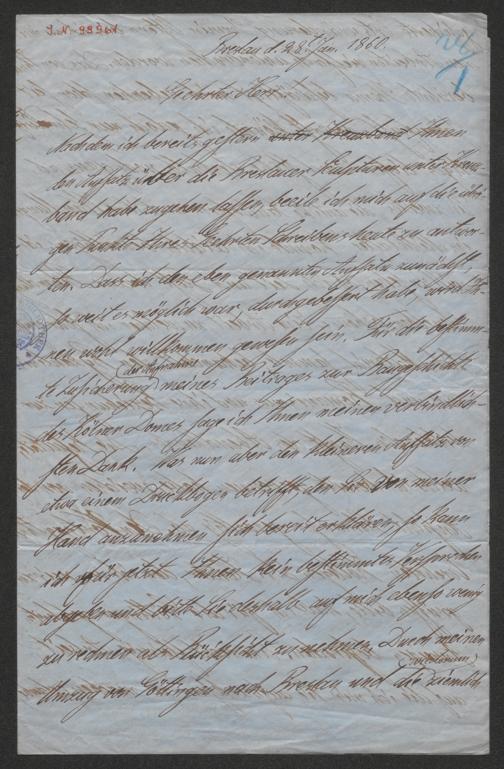 J. N. 98961
26/1
Breslau d. 28t Jan. 1860.
Geehrter Herr!
Nachdem ich bereits gestern unter Kreuzband Ihnen
den Aufsatz über die Breslauer Sculpturen unter Kreuz-
band habe zugehen lassen, beeile ich mich auf die übri-
gen Punkte Ihres geehrten Schreibens heute zu antwor-
ten. Dass ich den eben genannten Aufsatz zunächst,
so weit es möglich war, durchgebessert habe, wird Ih-
nen wohl willkommen gewesen sein. Für die bestimm-
te Zusicherung (der Aufnahme) meines Beitrages zur Baugeschichte
des Kölner Domes sage ich Ihnen meinen verbindlich-
sten Dank. Was nun aber den kleineren Aufsatz von
etwa einem Druckbogen betrifft, den Sie von meiner
Hand anzunehmen sich bereit erklären, so kann
ich für jetzt Ihnen kein bestimmtes Versprechen
abgeben und bitte Sie deshalb auf mich ebenso wenig
zu rechnen als Rücksicht zu nehmen. Durch meinen
Umzug von Göttingen nach Breslau und die ziemlich